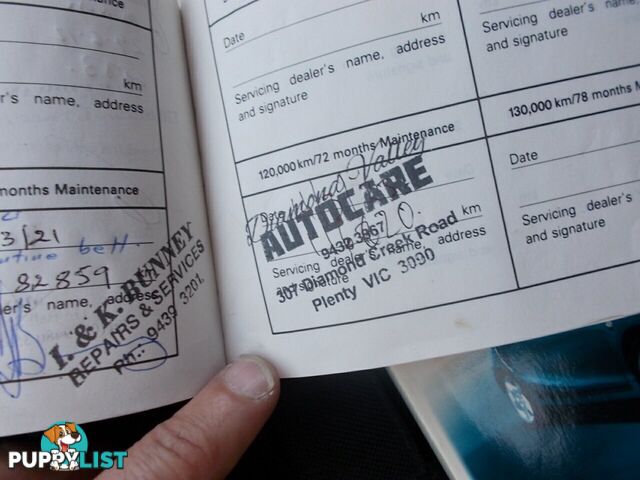 nance
km
er's name, address
months Maintenance
3/21
82859
er's name, address
I. & K. BUNNEY
REPAIRS & SERVICES
PH:- 9439 3201
Date
km
Servicing dealer's name, address
and signature
Servicing dealer's
and signature
120,000 km/72 months Maintenance
130,000 km/78 months M
Diamond Valley
AUTOCARE
9432 3967
km
Servicing dealer's name, address
and signature
307 Diamond Creek Road
Plenty VIC 3090
Date
Servicing dealer's
and signature
PUPPYLIST